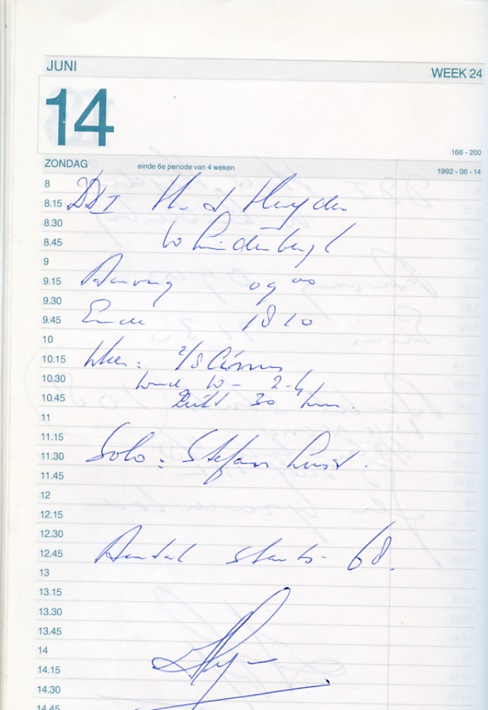 JUNI WEEK 24
14
166 - 200
ZONDAG einde 6e periode van 4 weken 1992 - 06 - 14
8
8.15 DDI H. v d Heyden
8.30
8.45 W Lindenbergh
9
9.15 Aanvang 09 00
9.30
9.45 Einde 18 10
10
10.15 Weer: 2/8 Cirrus
10.30 wind W - 2-4
10.45 Zicht 30 km.
11
11.15
11.30 Solo: Stefan
11.45
12
12.15
12.30
12.45 Aantal starts - 68.
13
13.15
13.30
13.45
14
14.15
14.30
14.45